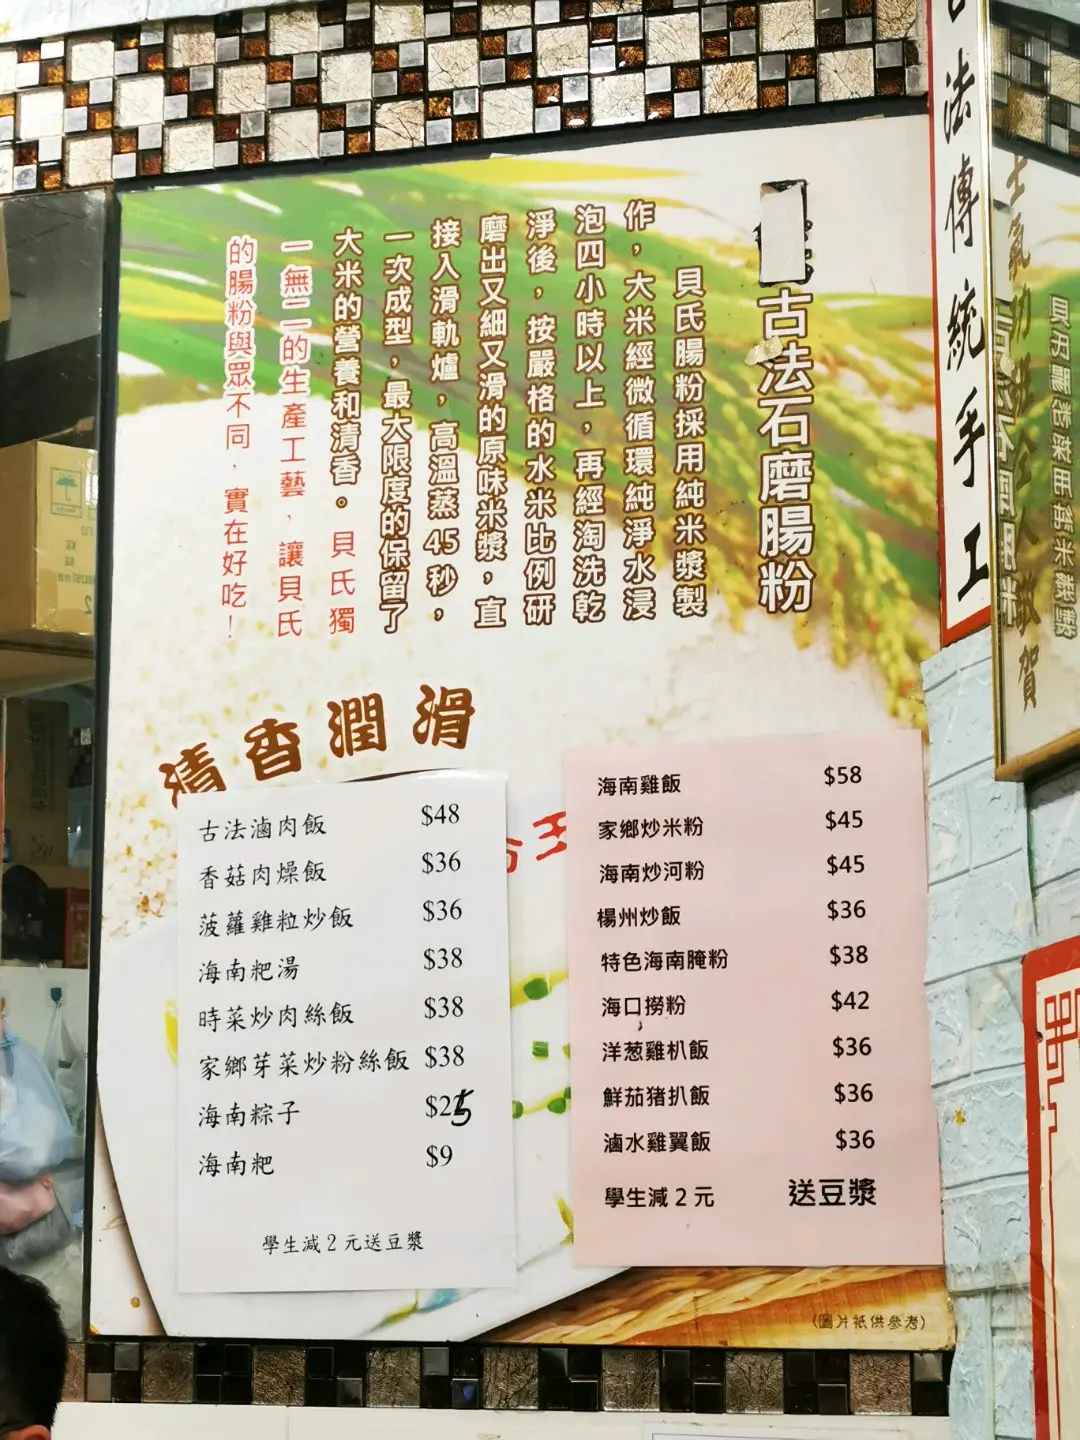 古法石磨腸粉
貝氏腸粉採用純米漿製
作，大米經微循環純淨水浸
泡四小時以上，再經淘洗乾
淨後，按嚴格的水米比例研
磨出又細又滑的原味米漿，直
接入滑軌爐，高溫蒸45秒，
一次成型，最大限度的保留了
大米的營養和清香。貝氏獨
一無二的生產工藝，讓貝氏
的腸粉與眾不同，實在好吃！
清香潤滑
古法滷肉飯 $48
香菇肉燥飯 $36
菠蘿雞粒炒飯 $36
海南粑湯 $38
時菜炒肉絲飯 $38
家鄉芽菜炒粉絲飯 $38
海南粽子 $25
海南粑 $9
學生減2元送豆漿
海南雞飯 $58
家鄉炒米粉 $45
海南炒河粉 $45
楊州炒飯 $36
特色海南腌粉 $38
海口撈粉 $42
洋葱雞朳飯 $36
鮮茄猪扒飯 $36
滷水雞翼飯 $36
學生減2元 送豆漿
(圖片祇供參考)
法傳統手工
賀